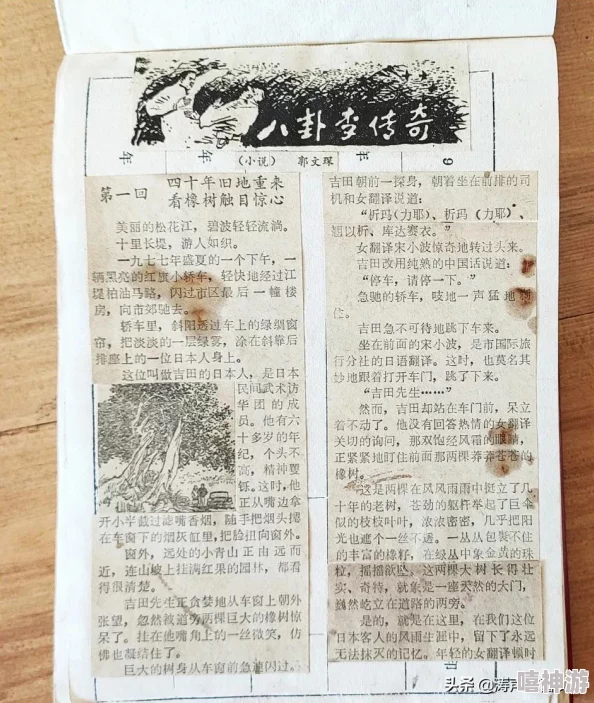 八卦李传奇
（小说） 郭文琛
第一回
四十年旧地重来
看橡树触目惊心
美丽的松花江，碧波轻轻流淌。
十里长堤，游人如织。
一九七七年盛夏的一个下午，一
辆黑亮的红旗小轿车，轻快地经过江
堤柏油马路，闪过市区最后一幢楼
房，向市郊驰去。
轿车里，斜阳透过车上的绿绸窗
帘，把淡淡的一层绿雾，涂在斜靠后
排座上的一位日本人身上。
这位叫做吉田的日本人，是日本
民间武术访
华团的成
员。他有六
十多岁的年
纪，个头不
高，精神矍
铄。这时，他
正从嘴边拿
开小半截过滤嘴香烟，随手把烟头摁
在车窗下的烟灰缸里，把脸扭向窗外。
窗外，远处的小青山正由远而
近，连山坡上挂满红果的园林，都看
得很清楚。
吉田先生正贪婪地从车窗上朝外
张望，忽然被道旁两棵巨大的橡树惊
呆了。挂在他嘴角上的一丝微笑，仿
佛也凝结住了。
巨大的树身从车窗前急速闪过。
吉田朝前一探身，朝着坐在前排的司
机和女翻译说道：
“析玛（力耶）、析玛（力耶）、
翘以析、库达赛衣。”
女翻译宋小波惊奇地转过头来。
吉田改用纯熟的中国话说道：
“停车，请停一下。”
急驰的轿车，吱地一声猛地刹
住。
吉田急不可待地跳下车来。
坐在前面的宋小波，是市国际旅
行分社的日语翻译。这时，也莫名其
妙地跟着打开车门，跳了下来。
“吉田先生……”
然而，吉田却站在车门前，呆立
着不动了。他没有回答热情的女翻译
关切的询问，那双饱经风霜的眼睛，
正紧紧地盯住前面那两棵莽莽苍苍的
橡树。
这是两棵在风风雨雨中挺立了几
十年的老树，苍劲的躯杆举起了巨伞
似的枝枝叶叶，浓浓密密，几乎把阳
光也遮个一丝不透。一丛丛包裹不住
的丰富的橡籽，在绿丛中象金黄的珠
粒，摇摇欲坠。这两棵大树长得壮
实、奇特，就象是一座天然的大门，
巍然屹立在道路的两旁。
是的，就是在这里，在我们这位
日本客人的风雨生涯中，留下了永远
无法抹灭的记忆。年轻的女翻译顿时
头条@涛声
嘻神游